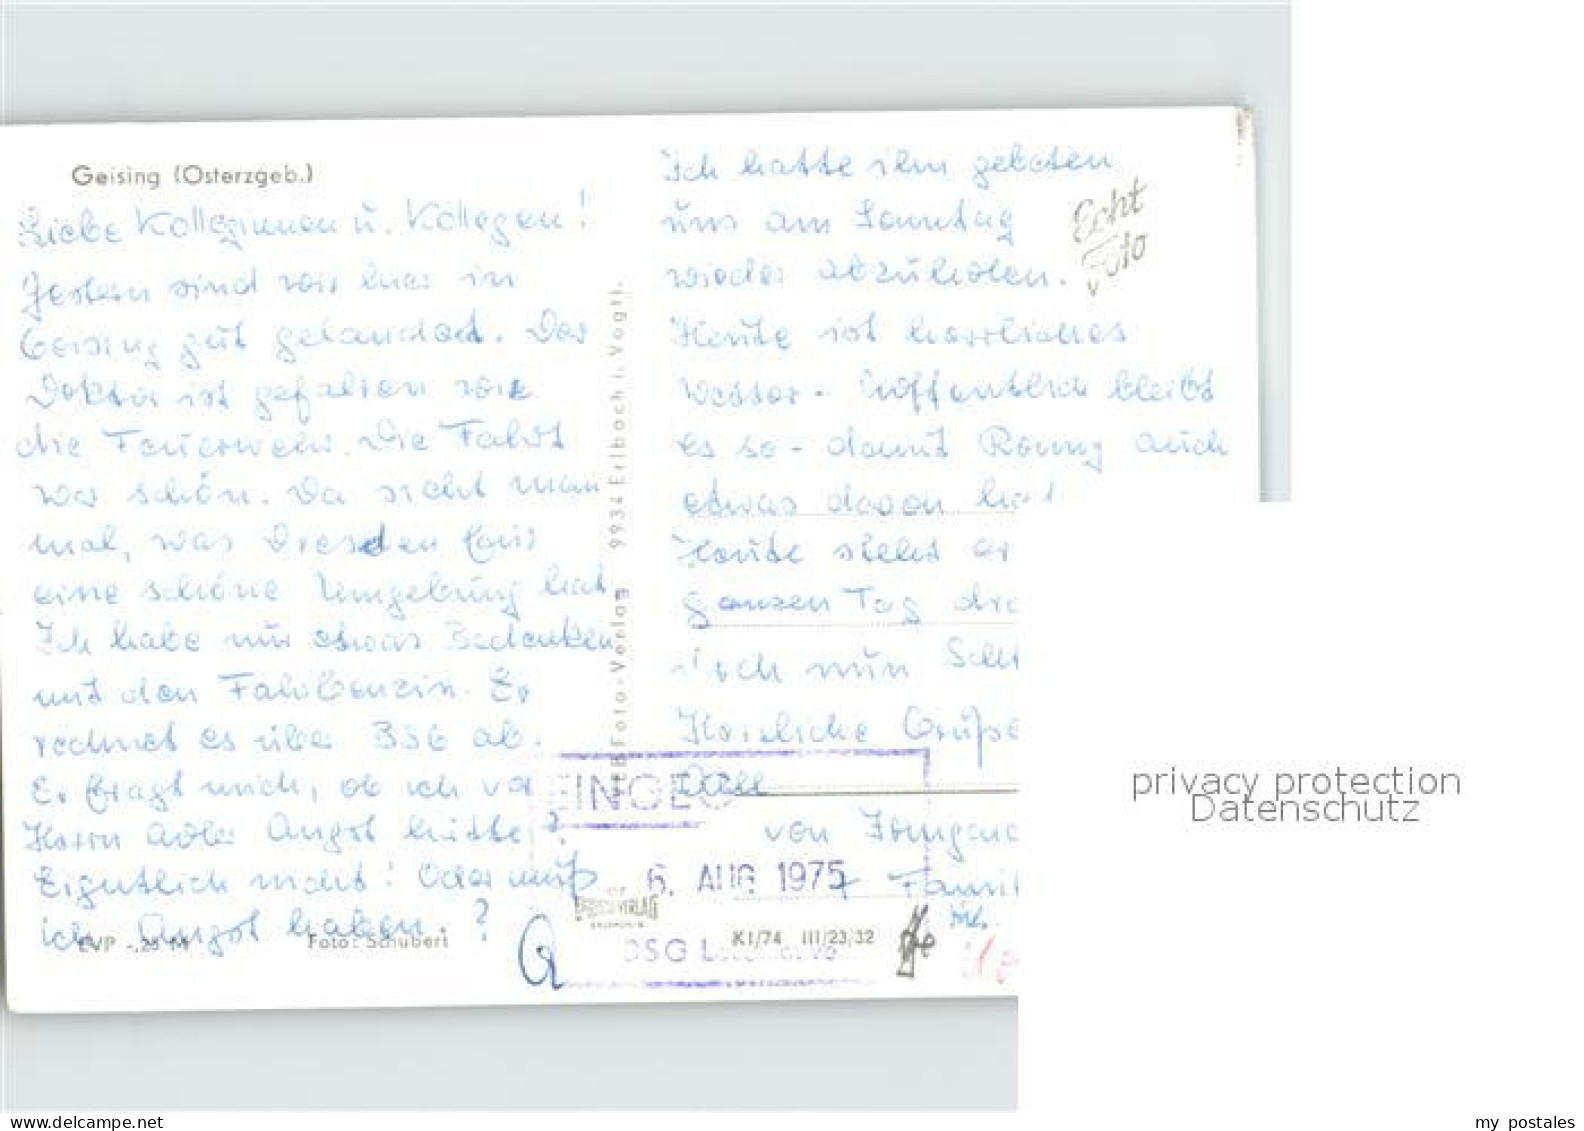 Geising (Osterzgeb.)
Liebe Kolleginnen u. Kollegen!
Gestern sind wir hier in
Geising gut gelandet. Der
Doktor ist gefahren wie
die Feuerwehr. Die Fahrt
war schön. Da sieht man
mal, was Dresden für
eine schöne Umgebung hat
Ich habe nur etwas Bedenken
mit den Fahrbenzin. Er
rechnet es über BSG ab.
Er fragt mich, ob ich vor
Herrn Adler Angst hätte?
Eigentlich nicht! Oder muß
ich Angst haben.?
EVP -,25 M
Foto: Schubert
VEB Foto-Verlag 9934 Erlbach i. Vogtl.
Ich hatte ihm gebeten
uns am Sonntag
wieder abzuholen.
Heute ist herrliches
Wetter - hoffentlich bleibt
es so - damit Ronny auch
etwas davon hat
Heute steht er
ganzen Tag
noch nun
Herzliche Grüße
Alle
von Irmgard
+ Famil
Echt
Foto
EINGEG
6. AUG 1975
BSG
K1/74 III/23/32
privacy protection
Datenschutz
my postales